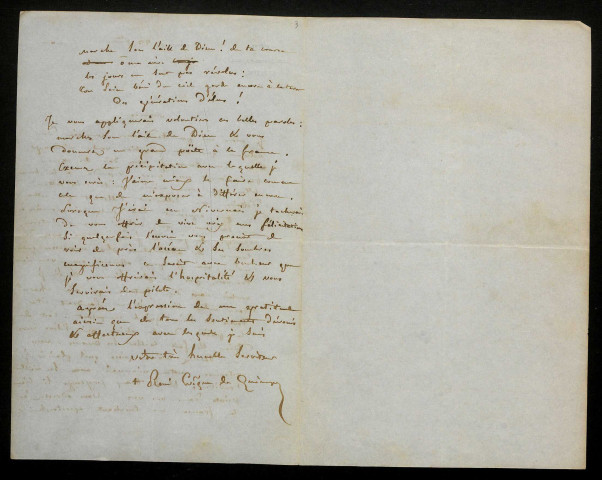 marche sous l'aile de Dieu ! de ta course
ô mon aimé
les jours ne sont pas révolus :
Ton sein béni du ciel garde encore à la terre
Des générations d'élus !
Je vous appliquerais volontiers ces belles paroles :
marchez sous l'aile de Dieu et vous
donnerez un grand poëte à la france.
Excusez la précipitation avec laquelle je
vous écris : J'aime mieux le faire comme
cela que de m'exposer à différer encore.
Lorsque j'irai en Nivernais je tacherai
de vous offrir de vive voix mes félicitations
Si quelquefois l'envie vous prenait de
voir de près l'océan et ses sombres
magnificences ce serait avec bonheur que
je vous offrirais l'hospitalité et vous
servirais de pilote.
agréez l'expression de ma gratitude
ainsi que de tous les sentiments dévoués
et affectueux avec lesquels je suis
votre très humble serviteur
+ René Évêque de Quimper